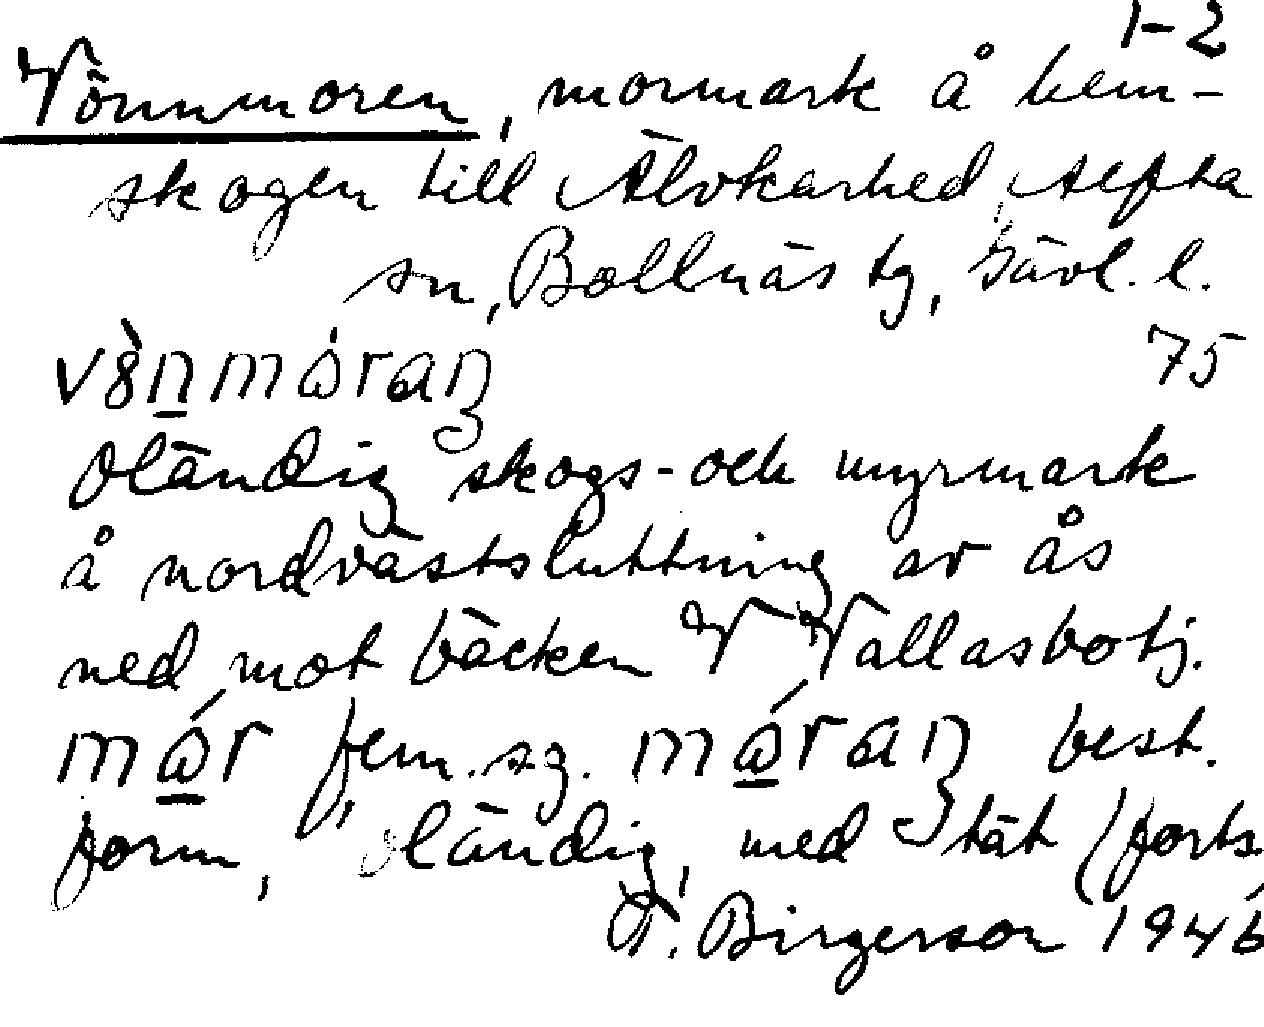 1-2
Vönnmoren, mormark å hem-
skogen till Älvkarhed, Alfta
sn, Bollnäs tg, Gävl. l.
75
Oländig skogs- och myrmark
å nordvästsluttning av ås
ned mot bäcken V Vallasbotj.
fem. sg. best.
form, oländig, med tät (forts.
F. Birgerson 1946